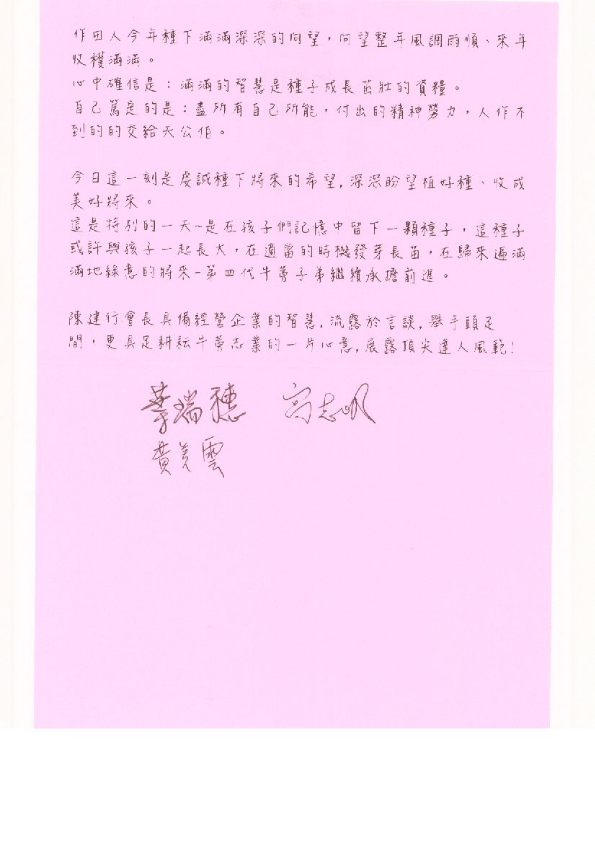 作田人今年種下滿滿深深的向望，向望整年風調雨順、來年
收穫滿滿。
心中確信是：滿滿的智慧是種子成長茁壯的資糧。
自己篤定的是：盡所有自己所能，付出的精神勞力，人作不
到的的交給天公伯。
今日這一刻是虔誠種下將來的希望,深深盼望植好種、收成
美好將來。
這是特別的一天~是在孩子們記憶中留下一顆種子，這種子
或許與孩子一起長大，在適當的時機發芽長苗，在歸來遍滿
滿地綠意的將來-第四代牛蒡子弟繼續承擔前進。
陳建行會長具備經營企業的智慧,流露於言談,舉手頭足
間，更具足耕耘牛蒡志業的一片心意,展露頂尖達人風範!
葉瑞穗 高志帆
黃美雲